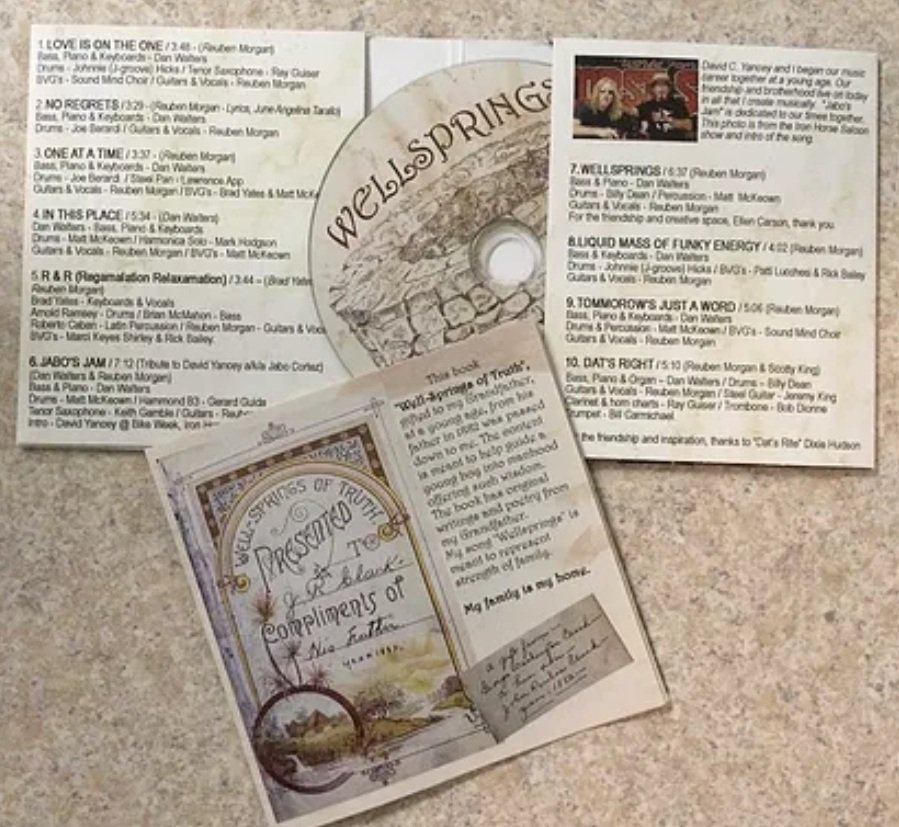 1. LOVE IS ON THE ONE / 3:48 - (Reuben Morgan)
Bass, Piano & Keyboards - Dan Walters
Drums - Johnnie (J-groov) Hicks / Tenor Saxophone - Ray Guiser
BVG's - Sound Mind Choir / Guitars & Vocals - Reuben Morgan
2. NO REGRETS / 3:29 - (Reuben Morgan - Lyrics, June-Angelina Tarallo)
Bass, Piano & Keyboards - Dan Walters
Drums - Joe Berardi / Guitars & Vocals - Reuben Morgan
3. ONE AT A TIME / 3:37 - (Reuben Morgan)
Bass, Piano & Keyboards - Dan Walters
Drums - Joe Berardi / Steel Pan - Lawrence App
Guitars & Vocals - Reuben Morgan / BVG's - Brad Yates & Matt McK
4. IN THIS PLACE / 5:34 - (Dan Walters)
Dan Walters - Bass, Piano & Keyboards
Drums - Matt McKeown / Harmonica Solo - Mark Hodgson
Guitars & Vocals - Reuben Morgan / BVG's - Matt McKeown
5. R & R (Regamalation Relaxamation) / 3:44 - (Brad Yates
Reuben Morgan)
Brad Yates - Keyboards & Vocals
Arnold Ramsey - Drums / Brian McMahon - Bass
Roberto Caban - Latin Percussion / Reuben Morgan - Guitars & Voc
BVG's - Marci Keyes Shirley & Rick Bailey
6. JABO'S JAM / 7:12 (Tribute to David Yancey a/k/a Jabo Cortez)
(Dan Walters & Reuben Morgan)
Bass & Piano - Dan Walters
Drums - Matt McKeown / Hammond B3 - Gerard Guida
Tenor Saxophone - Keith Gamble / Guitars - Reub
Intro - David Yancey @ Bike Week, Iron H
WELLSPRINGS
David C. Yancey and I began our music
career together at a young age. Our
friendship and brotherhood live on today
in all that I create musically. "Jabo's
Jam" is dedicated to our times together.
This photo is from the Iron Horse Saloon
show and intro of the song.
7. WELLSPRINGS / 6:37 (Reuben Morgan)
Bass & Piano - Dan Walters
Drums - Billy Dean / Percussion - Matt McKeown
Guitars & Vocals - Reuben Morgan
For the friendship and creative space, Ellen Carson, thank you.
8. LIQUID MASS OF FUNKY ENERGY / 4:02 (Reuben Morgan)
Bass & Keyboards - Dan Walters
Drums - Johnnie (J-groov) Hicks / BVG's - Patti Lucchesi & Rick Bailey
Guitars & Vocals - Reuben Morgan
9. TOMMOROW'S JUST A WORD / 5:06 (Reuben Morgan)
Bass, Piano & Keyboards - Dan Walters
Drums & Percussion - Matt McKeown / BVG's - Sound Mind Choir
Guitars & Vocals - Reuben Morgan
10. DAT'S RIGHT / 5:10 (Reuben Morgan & Scotty King)
Bass, Piano & Organ - Dan Walters / Drums - Billy Dean
Guitars & Vocals - Reuben Morgan / Steel Guitar - Jeremy King
Clarinet & horn charts - Ray Guiser / Trombone - Bob Dionne
Trumpet - Bill Carmichael
the friendship and inspiration, thanks to "Dat's Rite" Dixie Hudson
This book
"Well-Springs of Truth",
gifted to my Grandfather,
at a young age, from his
father in 1882 was passed
down to me. The content
is meant to help guide a
young boy into manhood
offering such wisdom.
The book has original
writings and poetry from
my Grandfather.
My song "Wellsprings" is
meant to represent
strength of family.
My family is my home.
WELL-SPRINGS OF TRUTH
PRESENTED
TO
J R Clark
Compliments of
His Father
A gift from
George Clark
to his son
John Clark
year 1882